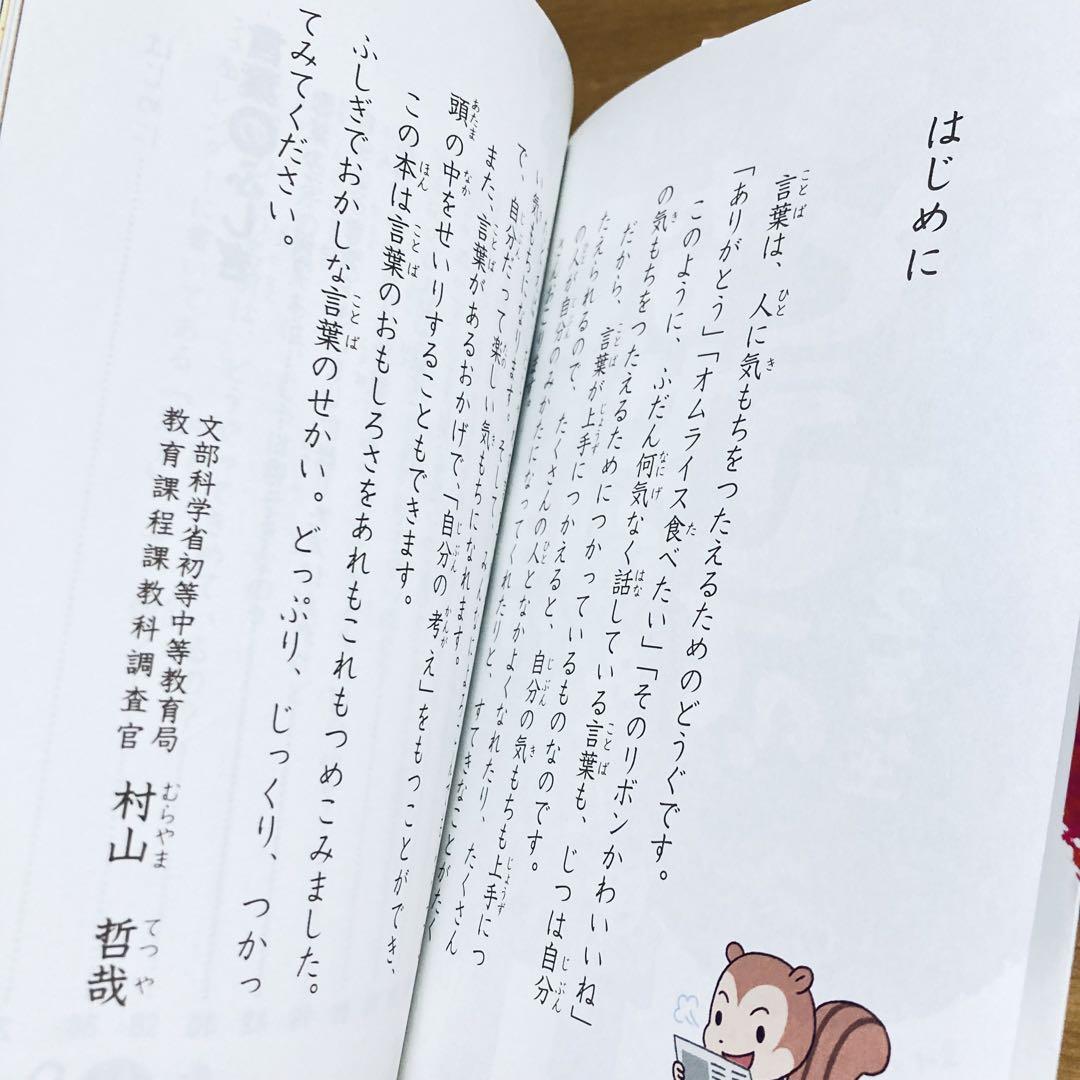 はじめに
言葉は、人に気もちをつたえるためのどうぐです。
「ありがとう」「オムライス食べたい」「そのリボンかわいいね」
このように、ふだん何気なく話している言葉も、じつは自分
の気もちをつたえるためにつかっているものなのです。
だから、言葉が上手につかえると、自分の気もちも上手につ
たえられるので、たくさんの人となかよくなれたり、たくさん
の人が自分のみかたになってくれたりと、すてきなことがたく
さんおこります。
い気もちになります。そして、みんな
で、自分だって楽しい気もちになれます。
また、言葉があるおかげで、「自分の考え」をもつことができ、
頭の中をせいりすることもできます。
この本は言葉のおもしろさをあれもこれもつめこみました。
ふしぎでおかしな言葉のせかい。どっぷり、じっくり、つかっ
てみてください。
文部科学省初等中等教育局
教育課程課教科調査官 村山 哲哉